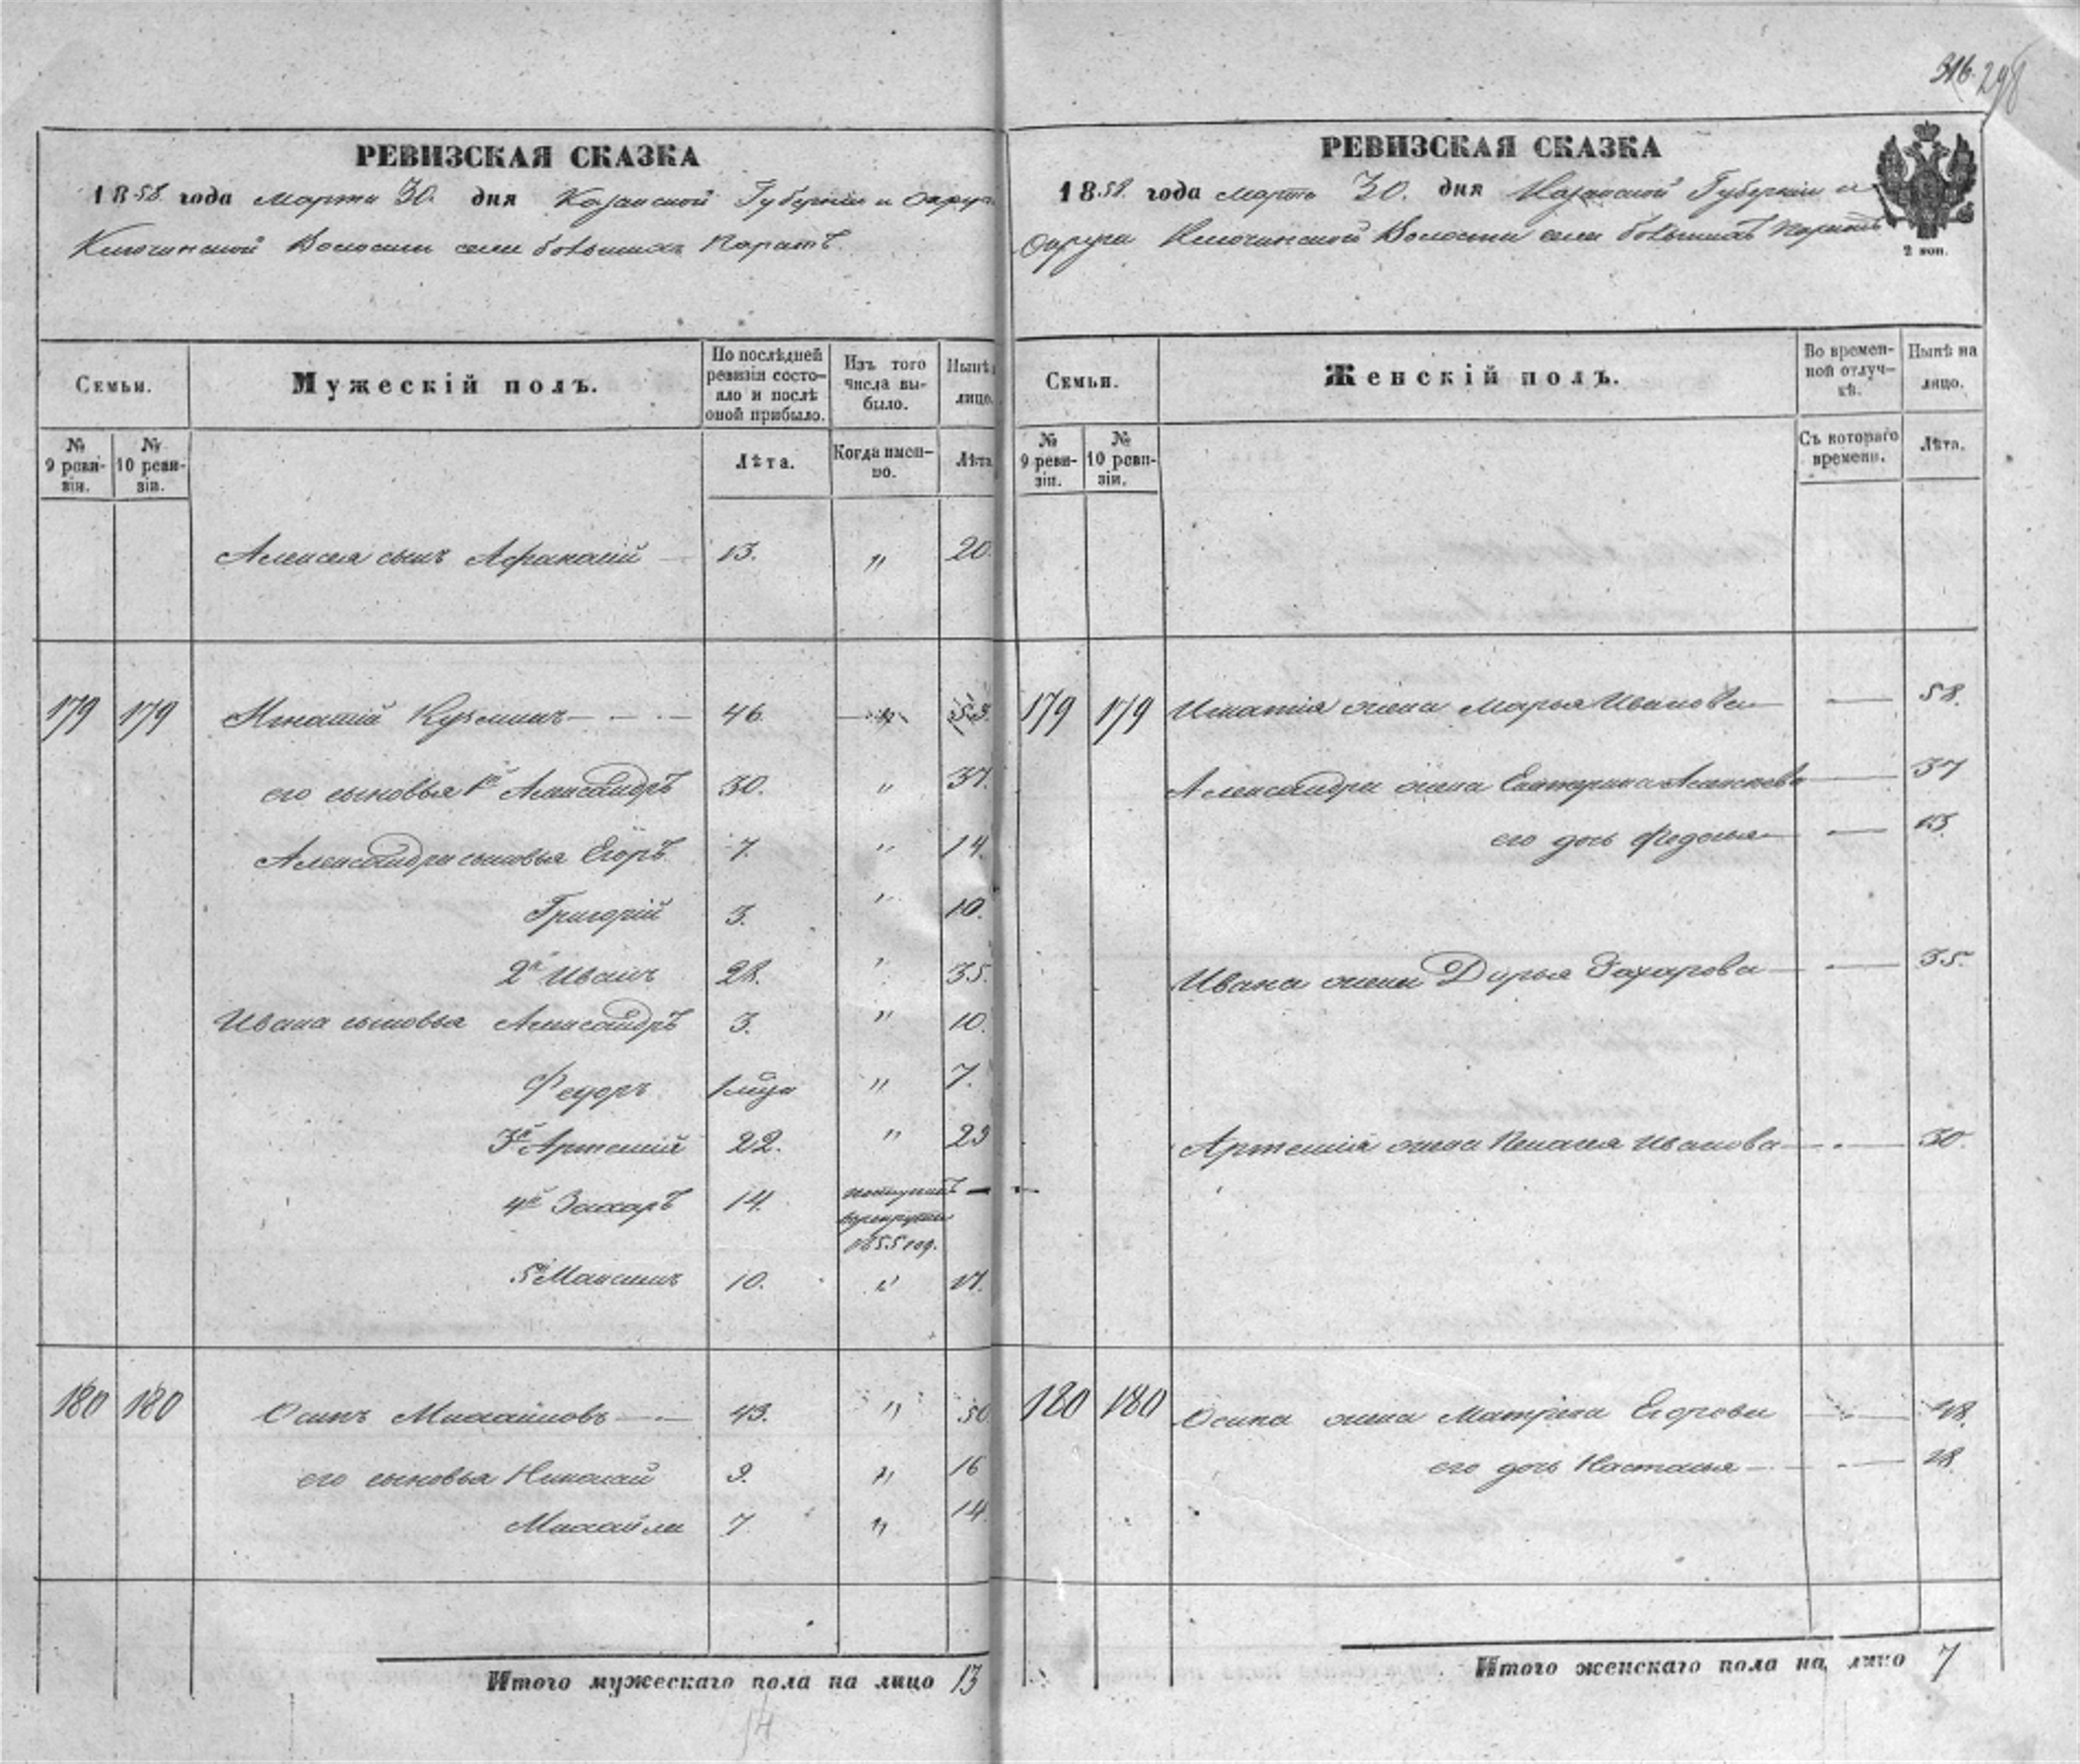 316. 298
РЕВИЗСКАЯ СКАЗКА
1858 года Марта 30. дня Казанской Губернии и Округа
Ключинской Волости села большихъ Паратъ.
Семьи.
Мужескій полъ.
По послѣдней ревизіи состояло и послѣ оной прибыло.
Изъ того числа выбыло.
Нынѣ лицо.
№ 9 ревизіи.
№ 10 ревизіи.
Лѣта.
Когда именно.
Лѣта
Алексея сынъ Афанасій 13. " 20.
179 179 Игнатій Кузминъ 46. " 53.
его сыновья 1й Александръ 30. " 37.
Александра сыновья Егоръ 7. " 14.
Григорій 3. " 10.
2й Иванъ 28. " 35.
Ивана сыновья Александръ 3. " 10.
Федоръ 1 мѣца " 7.
3й Артемій 22. " 29
4й Захаръ 14. поступилъ в рекруты 1855 год. —
5й Максимъ 10. " 17.
180 180 Осипъ Михайловъ 43. " 50
его сыновья Николай 9. " 16
Михайла 7 " 14
Итого мужескаго пола на лицо 13
14
РЕВИЗСКАЯ СКАЗКА
1858. года Марта 30. дня Казанской Губерніи и
Округа Ключинской Волости села большихъ Паратъ
2 коп.
Семьи.
Женскій полъ.
Во временной отлучкѣ.
Нынѣ на лицо.
№ 9 ревизіи.
№ 10 ревизіи.
Съ котораго времени.
Лѣта.
179 179 Игнатія жена Марья Иванова — 58.
Александра жена Екатерина Алексеева — 37
его дочь Федосья — 13.
Ивана жена Дарья Захарова — 35.
Артемія жена Пелагея Иванова — 30.
180 180 Осипа жена Матрена Егорова — 48.
его дочь Настасья — 18.
Итого женскаго пола на лицо 7